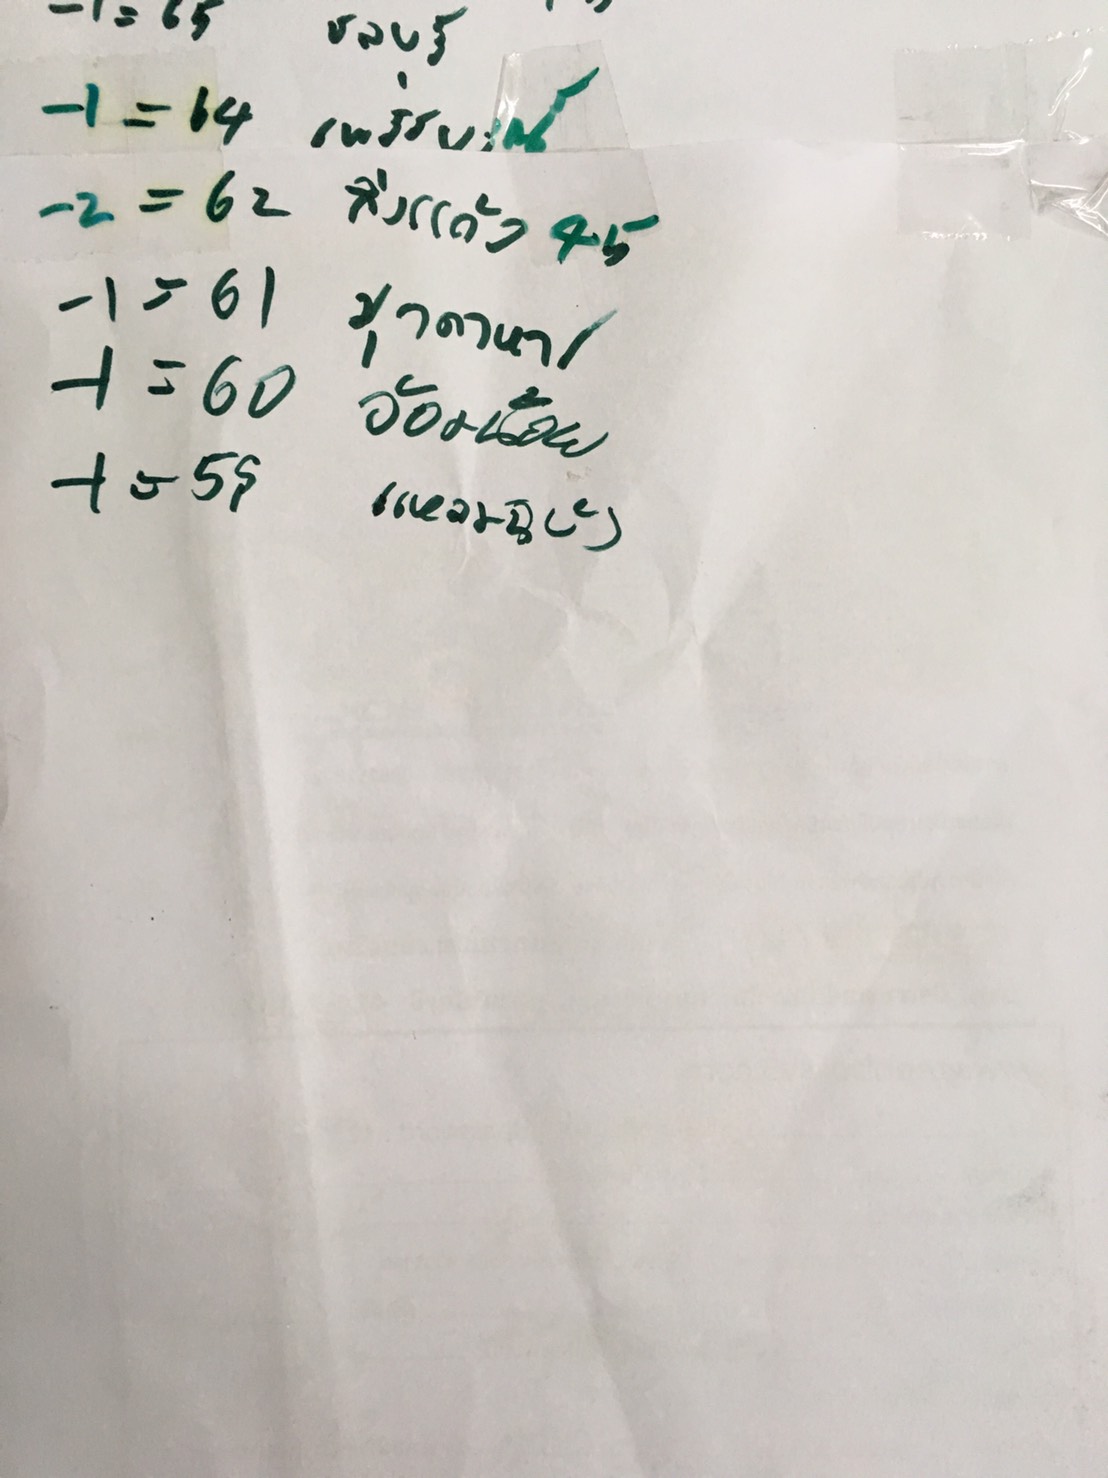 -1 = 65 ชลบุรี
-1 = 64 เพรชบูรณ์
-2 = 62 กิ่งแก้ว 45
-1 = 61 มุกดาหาร
-1 = 60 อ้อมน้อย
-1 = 59 แหลมฉบัง